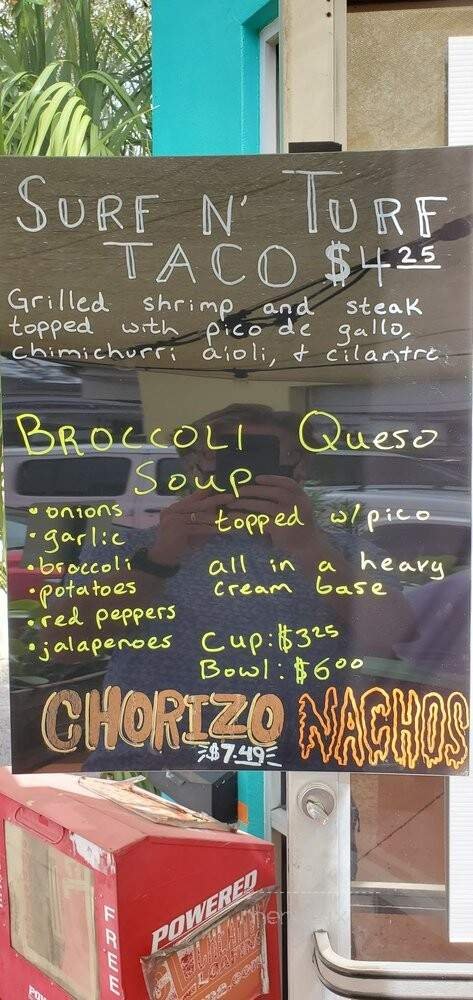 SURF N' TURF
TACO $4.25
Grilled shrimp and steak
topped with pico de gallo,
chimichurri aioli, + cilantro
BROCCOLI Queso
Soup
• onions
• garlic
• broccoli
• potatoes
• red peppers
• jalapenoes
topped w/pico
all in a heavy
cream base
Cup: $3.25
Bowl: $6.00
CHORIZO NACHOS
$7.49
POWERED
FREE